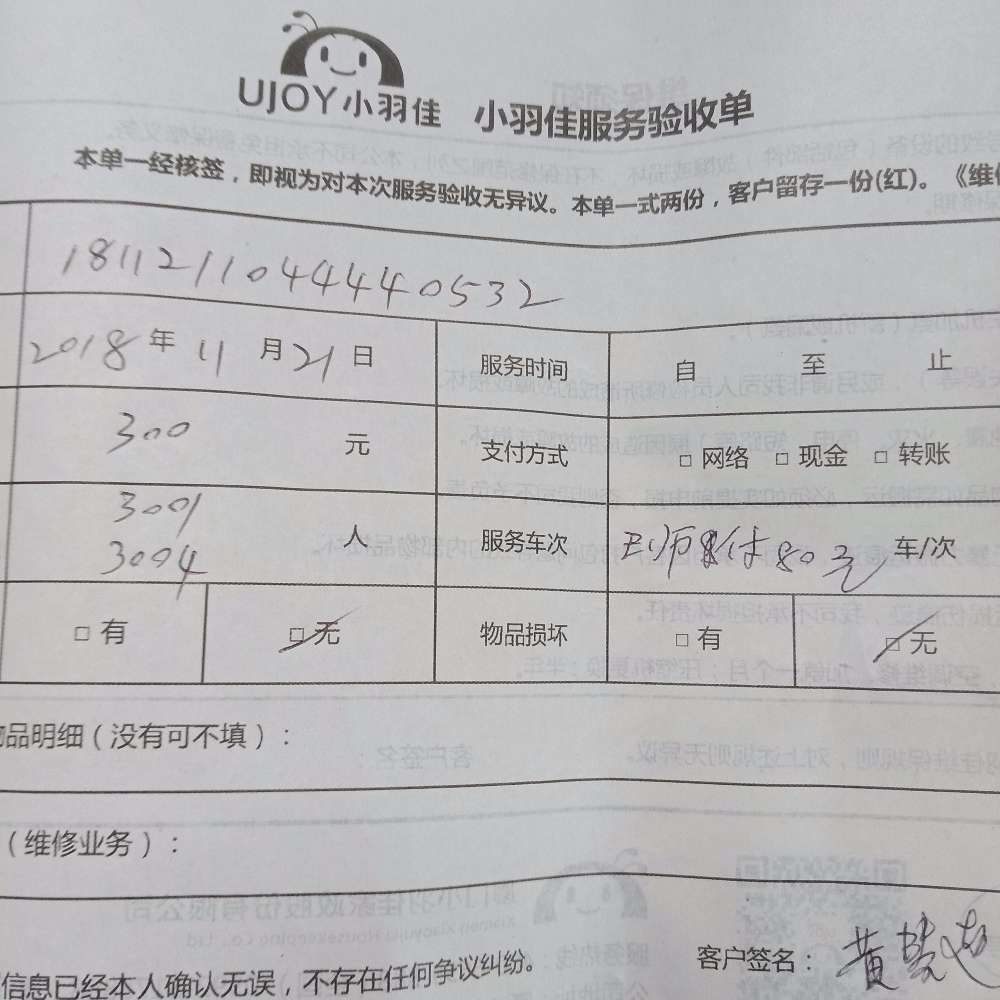 UJOY小羽佳 小羽佳服务验收单
本单一经核签，即视为对本次服务验收无异议。本单一式两份，客户留存一份(红)。《维
181121104444440532
2018年11月21日 服务时间 自 至 止
300 元 支付方式 □ 网络 □ 现金 □ 转账
3001
3004 人 服务车次 已 付80元 车/次
□ 有 □ 无 物品损坏 □ 有 □ 无
品明细（没有可不填）：
（维修业务）：
信息已经本人确认无误，不存在任何争议纠纷。 客户签名： 黄